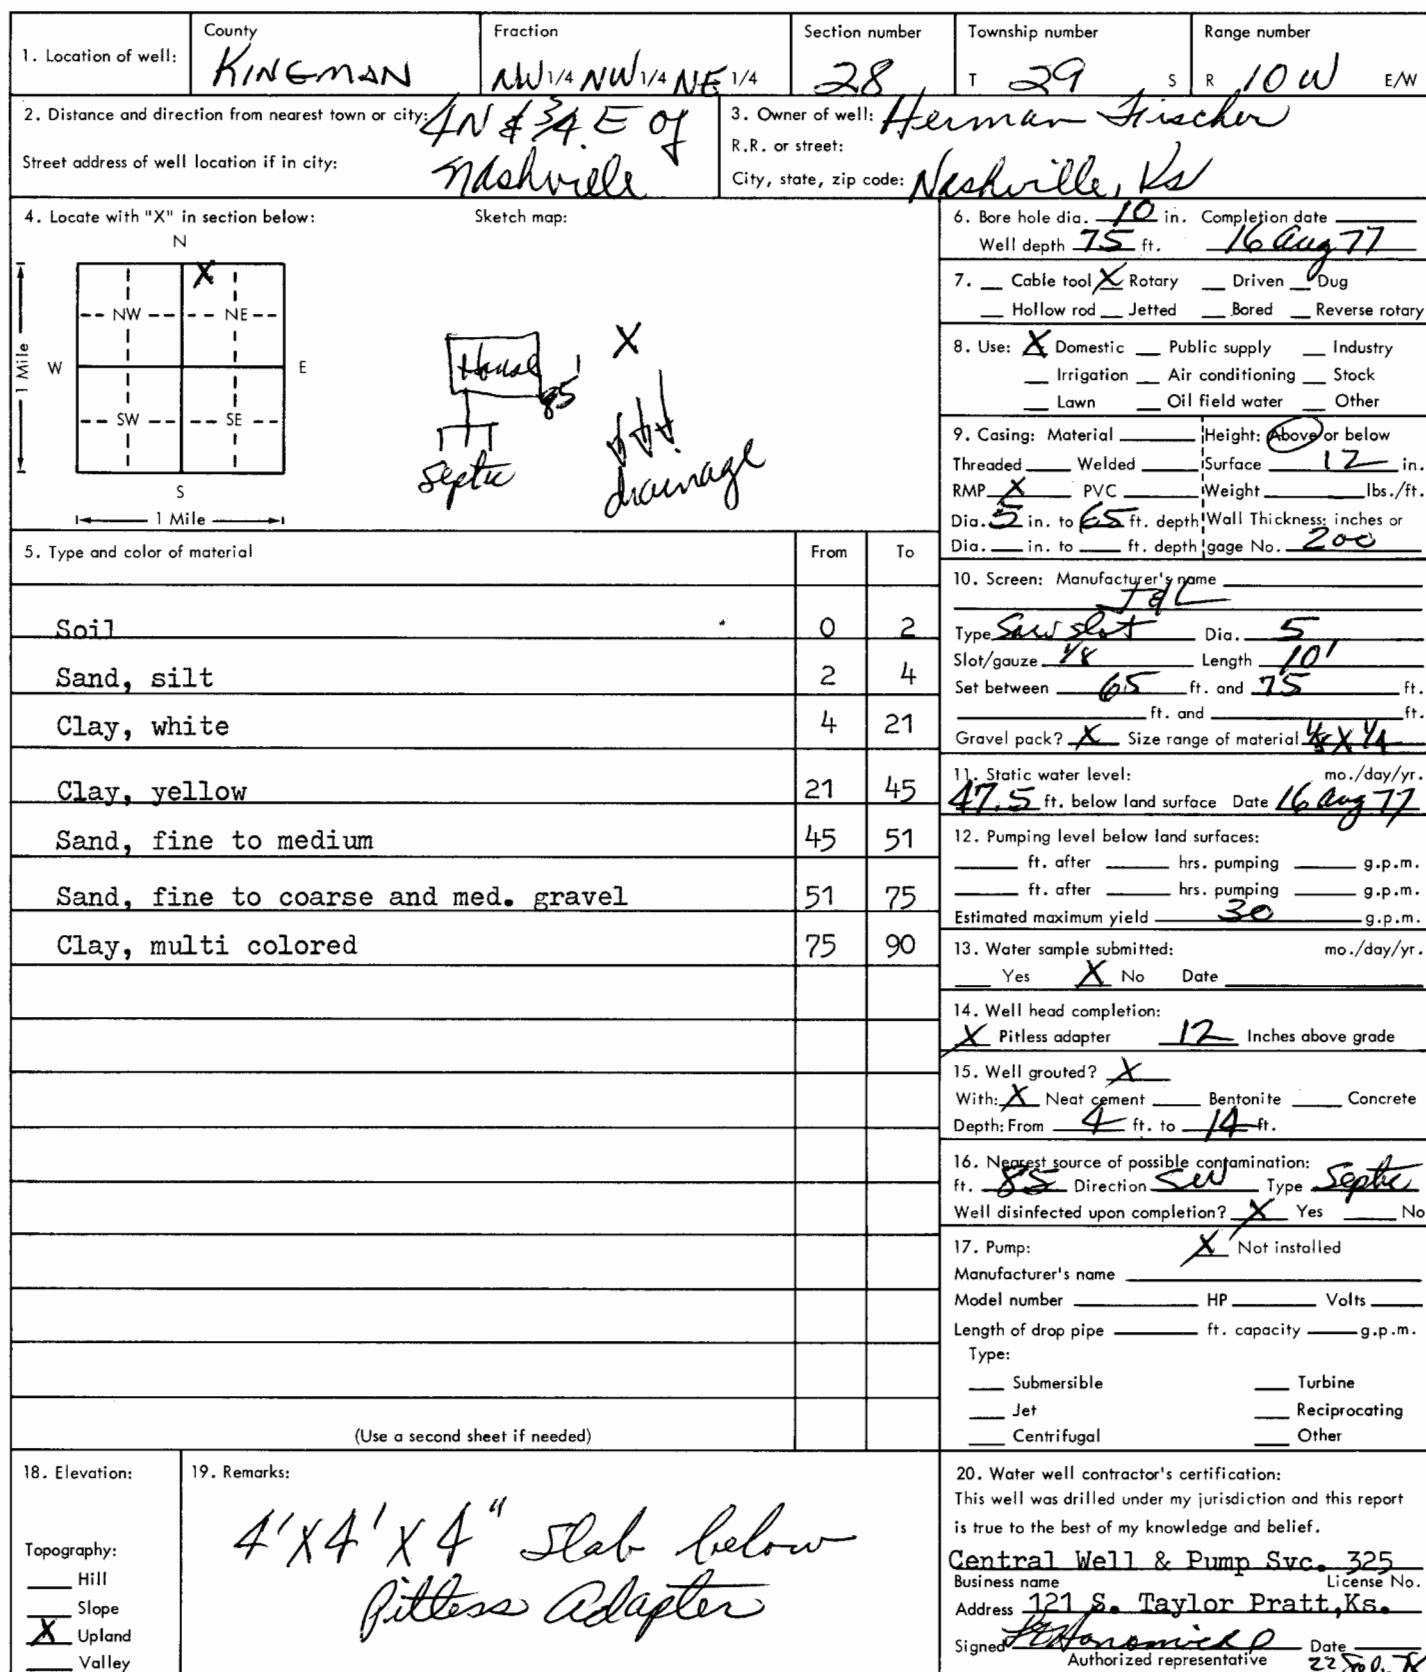 1. Location of well: County KINGMAN Fraction NW 1/4 NW 1/4 NE 1/4 Section number 28 Township number T 29 S Range number R 10 W E/W
2. Distance and direction from nearest town or city: 4N & 3/4 E of
Nashville
Street address of well location if in city:
3. Owner of well: Herman Fischer
R.R. or street:
City, state, zip code: Nashville, Ks
4. Locate with "X" in section below: Sketch map:
N
X
NW NE
W E
1 Mile
SW SE
S
1 Mile
House
85'
X
Septic
drainage
5. Type and color of material From To
Soil 0 2
Sand, silt 2 4
Clay, white 4 21
Clay, yellow 21 45
Sand, fine to medium 45 51
Sand, fine to coarse and med. gravel 51 75
Clay, multi colored 75 90
(Use a second sheet if needed)
6. Bore hole dia. 10 in. Completion date
Well depth 75 ft. 16 Aug 77
7. Cable tool X Rotary Driven Dug
Hollow rod Jetted Bored Reverse rotary
8. Use: X Domestic Public supply Industry
Irrigation Air conditioning Stock
Lawn Oil field water Other
9. Casing: Material Height: Above or below
Threaded Welded Surface 12 in.
RMP X PVC Weight lbs./ft.
Dia. 5 in. to 65 ft. depth Wall Thickness: inches or
Dia. in. to ft. depth gage No. 200
10. Screen: Manufacturer's name
J & L
Type Saw slot Dia. 5
Slot/gauze 1/8 Length 10'
Set between 65 ft. and 75 ft.
ft. and ft.
Gravel pack? X Size range of material 1/8 X 1/4
11. Static water level: mo./day/yr.
47.5 ft. below land surface Date 16 Aug 77
12. Pumping level below land surfaces:
ft. after hrs. pumping g.p.m.
ft. after hrs. pumping g.p.m.
Estimated maximum yield 30 g.p.m.
13. Water sample submitted: mo./day/yr.
Yes X No Date
14. Well head completion:
X Pitless adapter 12 Inches above grade
15. Well grouted? X
With: X Neat cement Bentonite Concrete
Depth: From 4 ft. to 14 ft.
16. Nearest source of possible contamination:
ft. 85 Direction SW Type Septic
Well disinfected upon completion? X Yes No
17. Pump: X Not installed
Manufacturer's name
Model number HP Volts
Length of drop pipe ft. capacity g.p.m.
Type:
Submersible Turbine
Jet Reciprocating
Centrifugal Other
18. Elevation:
Topography:
Hill
Slope
X Upland
Valley
19. Remarks:
4'X4'X4" Slab below
Pitless Adapter
20. Water well contractor's certification:
This well was drilled under my jurisdiction and this report
is true to the best of my knowledge and belief.
Central Well & Pump Svc. 325
Business name License No.
Address 121 S. Taylor Pratt,Ks.
Signed Date 22
Authorized representative